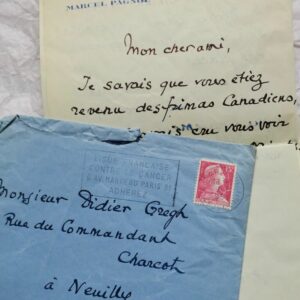 MARCEL PAGNOL
Mon cher ami,
Je savais que vous étiez
revenu des Canadiens,
cru vous voir
LIGUE FRANÇAISE
CONTRE LE CANCER
6 AV. MARCEAU PARIS 8e
ADHEREZ
Monsieur Didier Gregh
Rue du Commandant
Charcot
à Neuilly